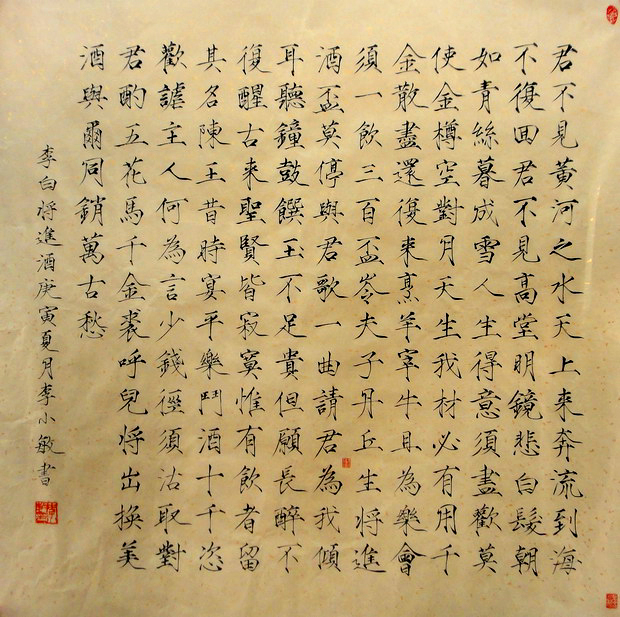 君不見黃河之水天上來奔流到海
不復回君不見高堂明鏡悲白髮朝
如青絲暮成雪人生得意須盡歡莫
使金樽空對月天生我材必有用千
金散盡還復來烹羊宰牛且為樂會
須一飲三百盃岑夫子丹丘生将進
酒盃莫停與君歌一曲請君為我傾
耳聽鐘鼓饌玉不足貴但願長醉不
復醒古來聖賢皆寂寞惟有飲者留
其名陳王昔時宴平樂鬥酒十千恣
歡謔主人何為言少錢徑須沽取對
君酌五花馬千金裘呼兒将出換美
酒與爾同銷萬古愁
李白将進酒庚寅夏月李小敏書